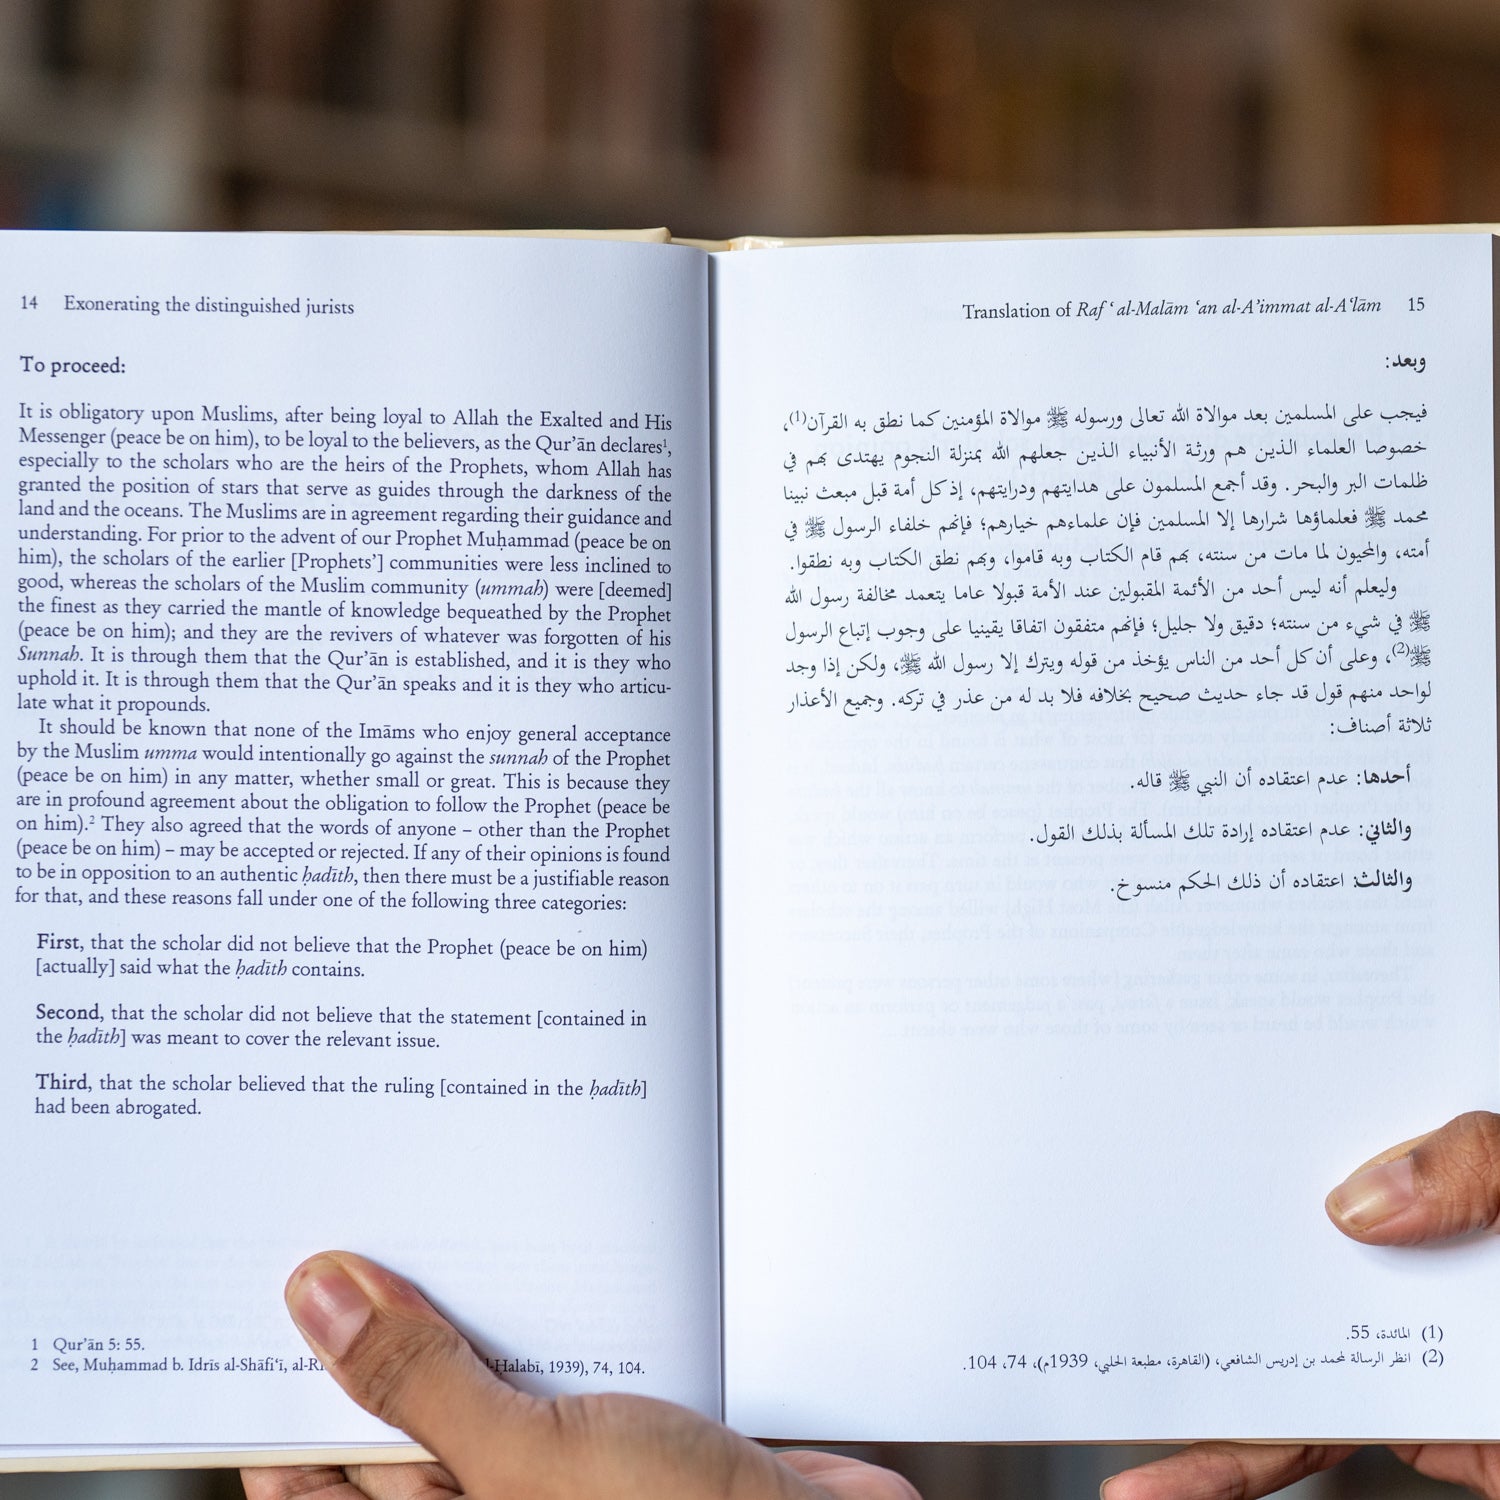 14 Exonerating the distinguished jurists
To proceed:
It is obligatory upon Muslims, after being loyal to Allah the Exalted and His
Messenger (peace be on him), to be loyal to the believers, as the Qur’ān declares¹,
especially to the scholars who are the heirs of the Prophets, whom Allah has
granted the position of stars that serve as guides through the darkness of the
land and the oceans. The Muslims are in agreement regarding their guidance and
understanding. For prior to the advent of our Prophet Muḥammad (peace be on
him), the scholars of the earlier [Prophets’] communities were less inclined to
good, whereas the scholars of the Muslim community (ummah) were [deemed]
the finest as they carried the mantle of knowledge bequeathed by the Prophet
(peace be on him); and they are the revivers of whatever was forgotten of his
Sunnah. It is through them that the Qur’ān is established, and it is they who
uphold it. It is through them that the Qur’ān speaks and it is they who articu-
late what it propounds.
It should be known that none of the Imāms who enjoy general acceptance
by the Muslim umma would intentionally go against the sunnah of the Prophet
(peace be on him) in any matter, whether small or great. This is because they
are in profound agreement about the obligation to follow the Prophet (peace be
on him).² They also agreed that the words of anyone – other than the Prophet
(peace be on him) – may be accepted or rejected. If any of their opinions is found
to be in opposition to an authentic ḥadīth, then there must be a justifiable reason
for that, and these reasons fall under one of the following three categories:
First, that the scholar did not believe that the Prophet (peace be on him)
[actually] said what the ḥadīth contains.
Second, that the scholar did not believe that the statement [contained in
the ḥadīth] was meant to cover the relevant issue.
Third, that the scholar believed that the ruling [contained in the ḥadīth]
had been abrogated.
1 Qur’ān 5: 55.
2 See, Muḥammad b. Idrīs al-Shāfi‘ī, 1939), 74, 104.
Translation of Raf‘ al-Malām ‘an al-A’immat al-A‘lām 15
وبعد:
فيجب على المسلمين بعد موالاة الله تعالى ورسوله ﷺ موالاة المؤمنين كما نطق به القرآن(1)،
خصوصا العلماء الذين هم ورثة الأنبياء الذين جعلهم الله بمنزلة النجوم يهتدى بهم في
ظلمات البر والبحر. وقد أجمع المسلمون على هدايتهم ودرايتهم، إذ كل أمة قبل مبعث نبينا
محمد ﷺ فعلماؤها شرارها إلا المسلمين فإن علماءهم خيارهم؛ فإنهم خلفاء الرسول ﷺ في
أمته، والمحيون لما مات من سنته، بهم قام الكتاب وبه قاموا، وبهم نطق الكتاب وبه نطقوا.
وليعلم أنه ليس أحد من الأئمة المقبولين عند الأمة قبولا عاما يتعمد مخالفة رسول الله
ﷺ في شيء من سنته؛ دقيق ولا جليل؛ فإنهم متفقون اتفاقا يقينيا على وجوب إتباع الرسول
ﷺ(2)، وعلى أن كل أحد من الناس يؤخذ من قوله ويترك إلا رسول الله ﷺ، ولكن إذا وجد
لواحد منهم قول قد جاء حديث صحيح بخلافه فلا بد له من عذر في تركه. وجميع الأعذار
ثلاثة أصناف:
أحدها: عدم اعتقاده أن النبي ﷺ قاله.
والثاني: عدم اعتقاده إرادة تلك المسألة بذلك القول.
والثالث: اعتقاده أن ذلك الحكم منسوخ.
(1) المائدة، 55.
(2) انظر الرسالة لمحمد بن إدريس الشافعي، (القاهرة، مطبعة الحلبي، 1939م)، 74، 104.